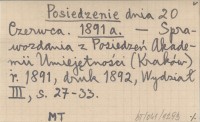 Posiedzenie dnia 20
Czerwca. 1891 a. — Spra-
wozdania z Posiedzeń Akade-
mii Umiejętności (Kraków)
r. 1891, druk 1892, Wydział
III, s. 27-33.
MT